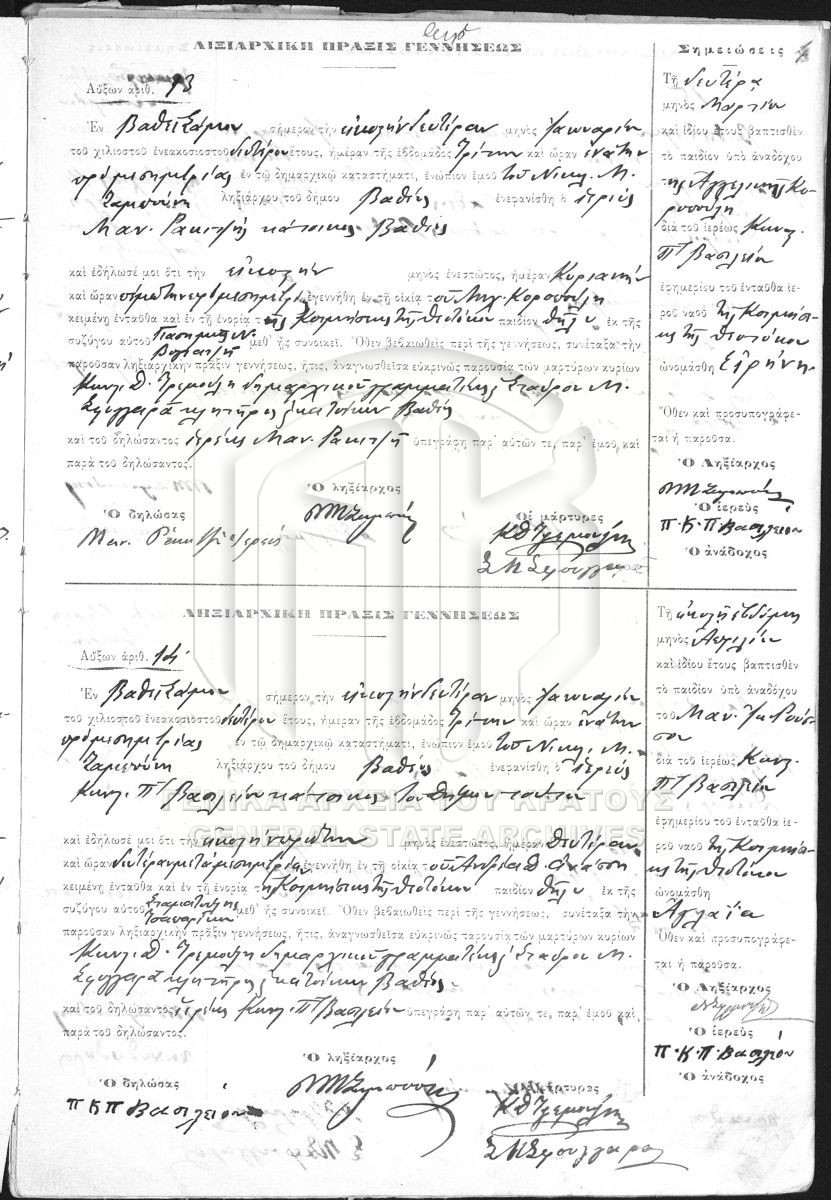 ΛΙΞΙΑΡΧΙΚΗ ΠΡΑΞΙΣ ΓΕΝΝΗΣΕΩΣ
Αὔξων ἀριθ. 13
Ἐν Βαθεῖ Σάμου σήμερον τὴν εἰκοστὴν δευτέραν μηνὸς Ἰανουαρίου
τοῦ χιλιοστοῦ ἐνεακοσιοστοῦ δευτέρου ἔτους, ἡμέραν τῆς ἑβδομάδος Τρίτην καὶ ὥραν ἐνάτην
πρὸ μεσημβρίας ἐν τῷ δημαρχικῷ καταστήματι, ἐνώπιον ἐμοῦ τοῦ Νικ. Μ.
ληξιάρχου τοῦ δήμου Βαθέος ἐνεφανίσθη ὁ ἱερεὺς
Μαν. κάτοικος Βαθέος
καὶ ἐδήλωσέ μοι ὅτι τὴν εἰκοστὴν μηνὸς ἐνεστῶτος, ἡμέραν Κυριακὴν
καὶ ὥραν ἐγεννήθη ἐν τῇ οἰκίᾳ τοῦ
κειμένῃ ἐνταῦθα καὶ ἐν τῇ ἐνορίᾳ τῆς Κοιμήσεως τῆς Θεοτόκου παιδίον θῆλυ ἐκ τῆς
συζύγου αὐτοῦ μεθ' ἧς συνοικεῖ. Ὅθεν βεβαιωθεὶς περὶ τῆς γεννήσεως, συνέταξα τὴν
παροῦσαν ληξιαρχικὴν πρᾶξιν γεννήσεως, ἥτις, ἀναγνωσθεῖσα εὐκρινῶς παρουσίᾳ τῶν μαρτύρων κυρίων
Κωνσ. Δ. Τρεμούλη δημαρχικοῦ γραμματέως & Σταύρου Μ.
Σφουγγαρᾶ κλητῆρος κατοίκων Βαθέος
καὶ τοῦ δηλώσαντος ἱερέως Μαν. ὑπεγράφη παρ' αὐτῶν τε, παρ' ἐμοῦ, καὶ
παρὰ τοῦ δηλώσαντος.
Ὁ ληξίαρχος
Ὁ δηλώσας
Οἱ μάρτυρες
Σημειώσεις
Τῇ δευτέρᾳ
μηνὸς Μαρτίου
καὶ ἰδίου ἔτους βαπτισθὲν
τὸ παιδίον ὑπὸ ἀναδόχου
τῆς Ἀγγελικῆς Κο-
ροπούλη
διὰ τοῦ ἱερέως Κωνσ.
Ππ Βασιλείου
ἐφημερίου τοῦ ἐνταῦθα ἱε-
ροῦ ναοῦ τῆς Κοιμήσε-
ως τῆς Θεοτόκου
ὠνομάσθη Εἰρήνη
Ὅθεν καὶ προσυπογράφε-
ται ἡ παροῦσα.
Ὁ Ληξίαρχος
Ὁ ἱερεύς
Π·Κ·Π·Βασιλείου
Ὁ ἀνάδοχος
ΛΗΞΙΑΡΧΙΚΗ ΠΡΑΞΙΣ ΓΕΝΝΗΣΕΩΣ
Αὔξων ἀριθ. 14
Ἐν Βαθεῖ Σάμου σήμερον τὴν εἰκοστὴν δευτέραν μηνὸς Ἰανουαρίου
τοῦ χιλιοστοῦ ἐνεακοσιοστοῦ δευτέρου ἔτους, ἡμέραν τῆς ἑβδομάδος Τρίτην καὶ ὥραν ἐνάτην
πρὸ μεσημβρίας ἐν τῷ δημαρχικῷ καταστήματι, ἐνώπιον ἐμοῦ τοῦ Νικ. Μ.
ληξιάρχου τοῦ δήμου Βαθέος ἐνεφανίσθη ὁ ἱερεὺς
Κωνσ. Ππ Βασιλείου κάτοικος τοῦ δήμου τούτου
καὶ ἐδήλωσέ μοι ὅτι τὴν μηνὸς ἐνεστῶτος, ἡμέραν Δευτέραν
καὶ ὥραν δευτέραν μετὰ μεσημβρίαν ἐγεννήθη ἐν τῇ οἰκίᾳ τοῦ Ἀνδρέα Δ.
κειμένῃ ἐνταῦθα καὶ ἐν τῇ ἐνορίᾳ τῆς Κοιμήσεως τῆς Θεοτόκου παιδίον θῆλυ ἐκ τῆς
συζύγου αὐτοῦ μεθ' ἧς συνοικεῖ. Ὅθεν βεβαιωθεὶς περὶ τῆς γεννήσεως, συνέταξα τὴν
παροῦσαν ληξιαρχικὴν πρᾶξιν γεννήσεως, ἥτις, ἀναγνωσθεῖσα εὐκρινῶς παρουσίᾳ τῶν μαρτύρων κυρίων
Κωνσ. Δ. Τρεμούλη δημαρχικοῦ γραμματέως & Σταύρου Μ.
Σφουγγαρᾶ κλητῆρος κατοίκων Βαθέος
καὶ τοῦ δηλώσαντος ἱερέως Κωνσ. Ππ Βασιλείου ὑπεγράφη παρ' αὐτῶν τε, παρ' ἐμοῦ καὶ
παρὰ τοῦ δηλώσαντος.
Ὁ ληξίαρχος
Ὁ δηλώσας
Π Κ Π Βασιλείου
Οἱ μάρτυρες
Σ Μ Σφουγγαρᾶς
Τῇ εἰκοστῇ ἑβδόμῃ
μηνὸς Ἀπριλίου
καὶ ἰδίου ἔτους βαπτισθὲν
τὸ παιδίον ὑπὸ ἀναδόχου
τοῦ Μαν.
διὰ τοῦ ἱερέως Κωνσ.
Ππ Βασιλείου
ἐφημερίου τοῦ ἐνταῦθα ἱε-
ροῦ ναοῦ τῆς Κοιμήσε-
ως τῆς Θεοτόκου
ὠνομάσθη
Ἀγλαΐα
Ὅθεν καὶ προσυπογράφε-
ται ἡ παροῦσα.
Ὁ Ληξίαρχος
Ὁ ἱερεύς
Π·Κ·Π·Βασιλείου
Ὁ ἀνάδοχος
ΓΕΝΙΚΑ ΑΡΧΕΙΑ ΤΟΥ ΚΡΑΤΟΥΣ
GENERAL STATE ARCHIVES